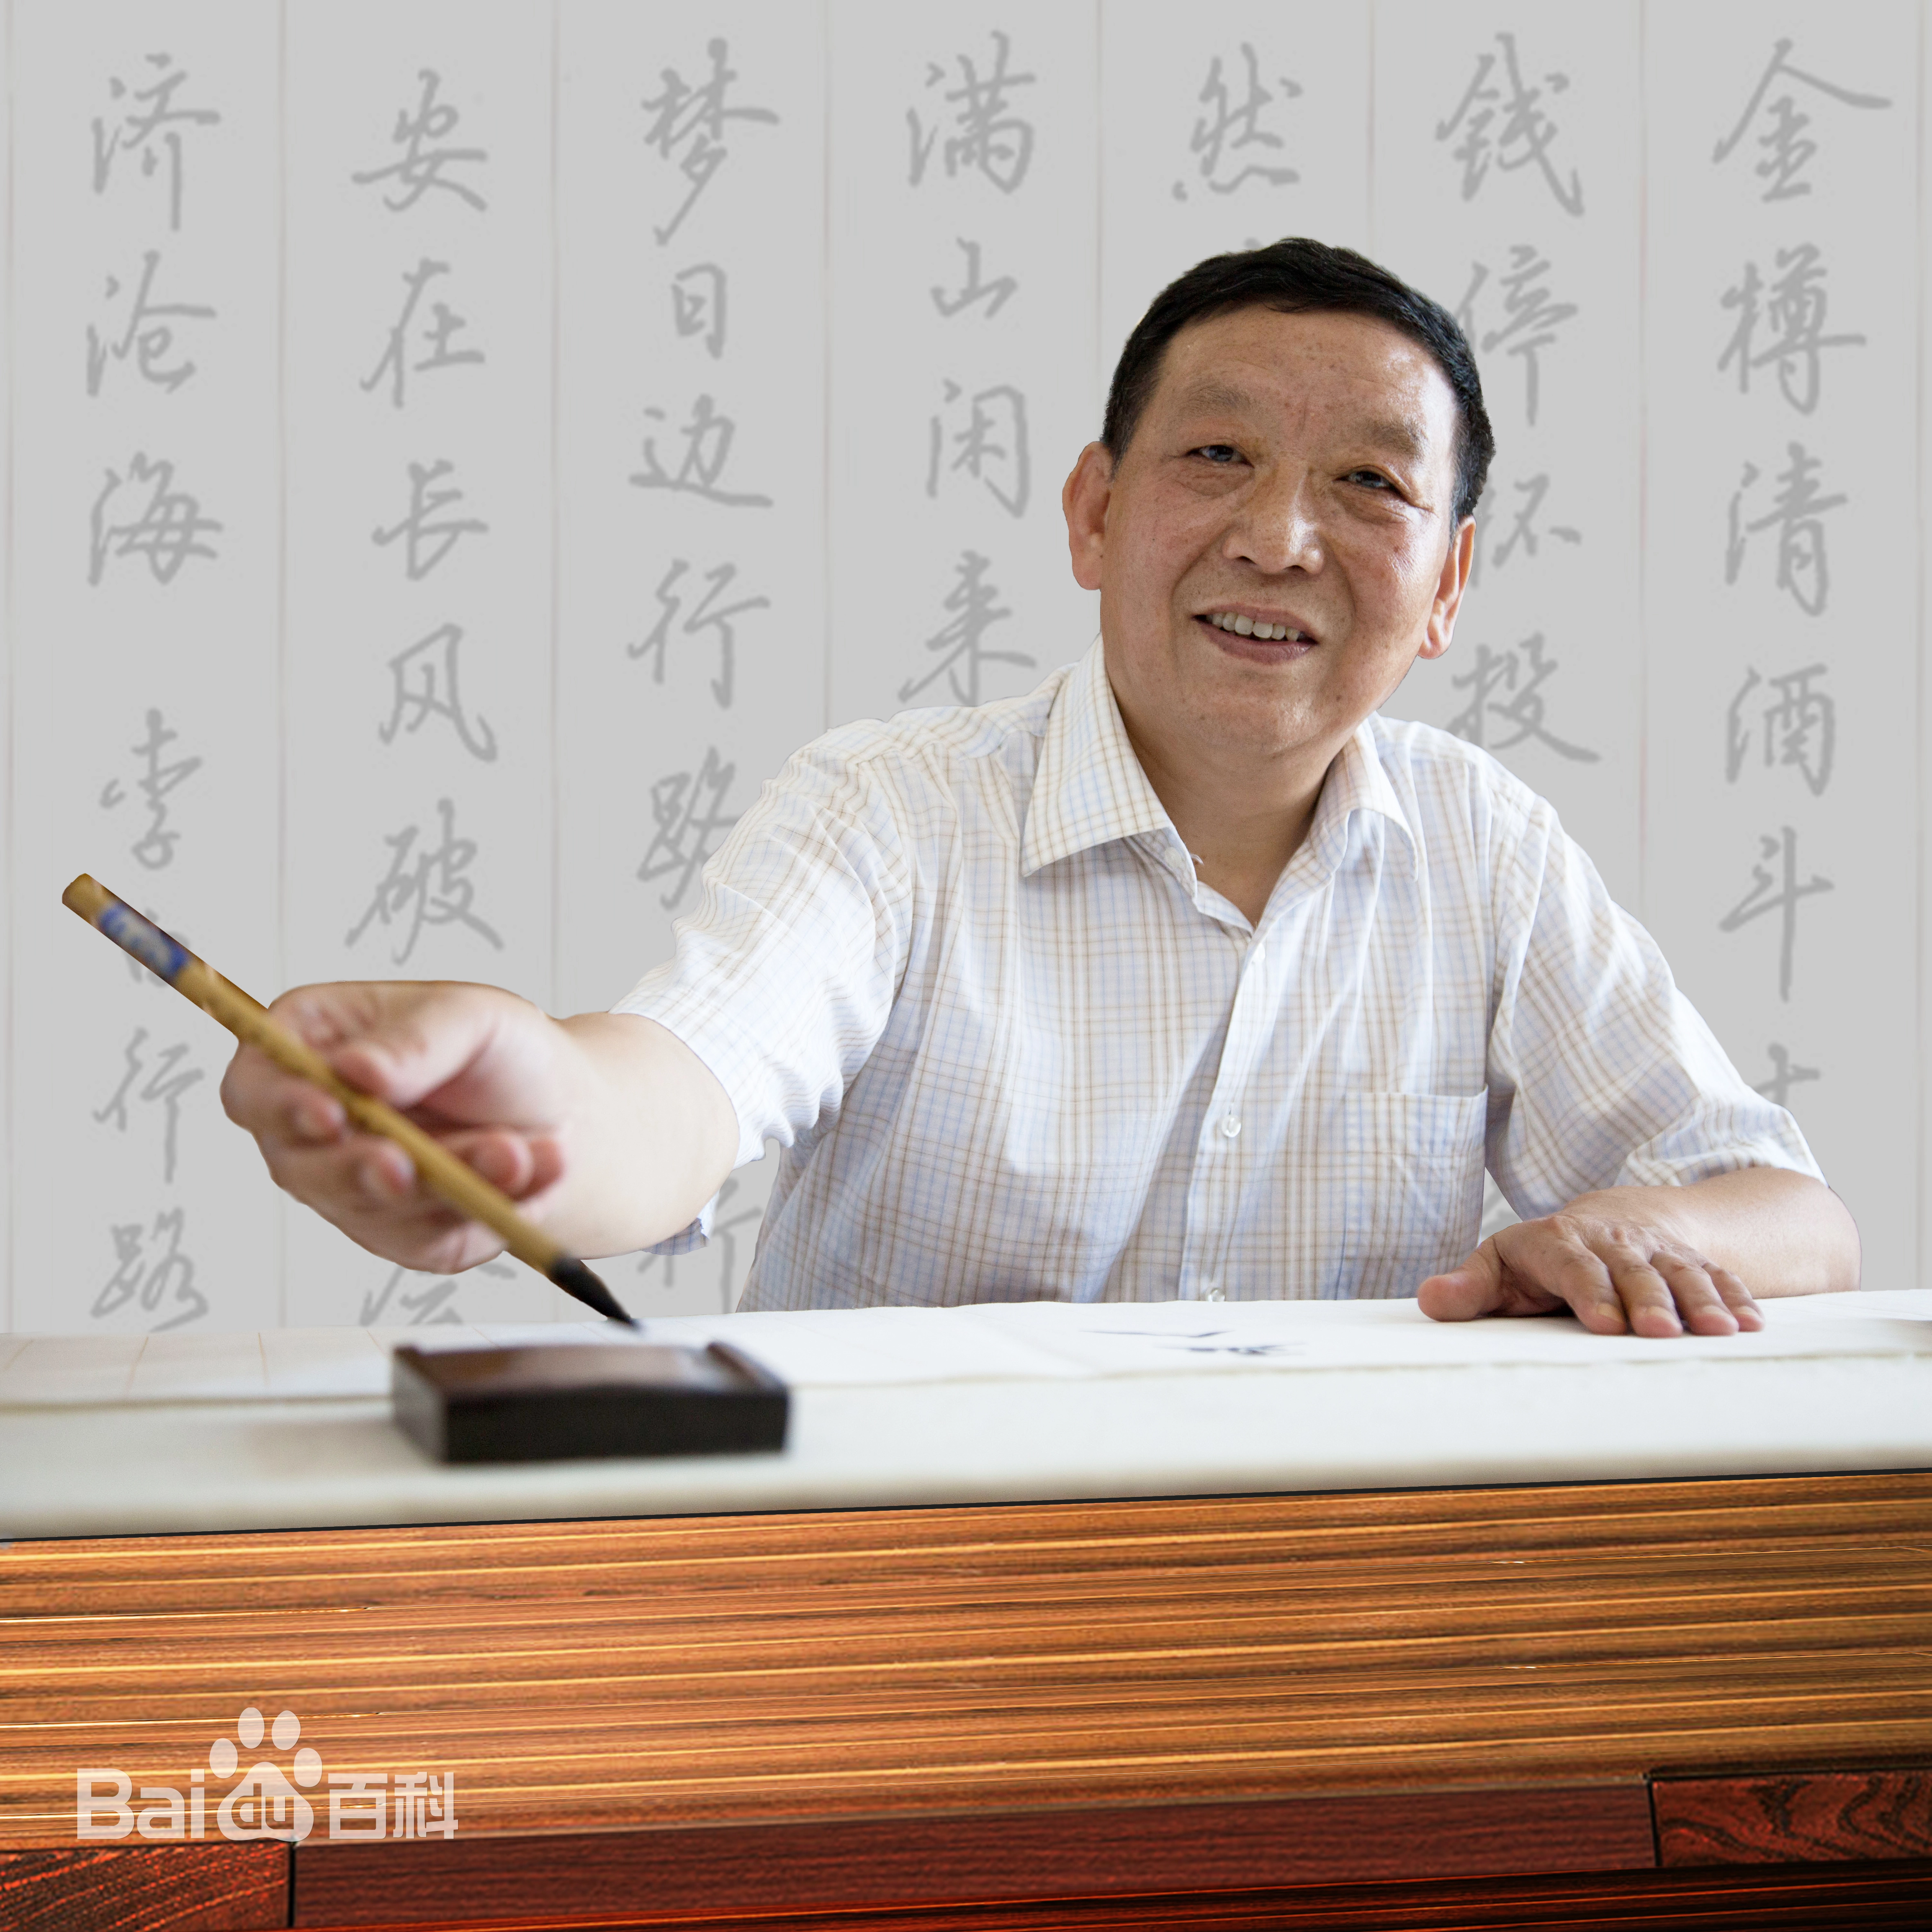 金樽清酒斗十
钱停杯投
然
满山闲来
梦日边行路
安在长风破
济沧海 李 行路
Bai du 百科